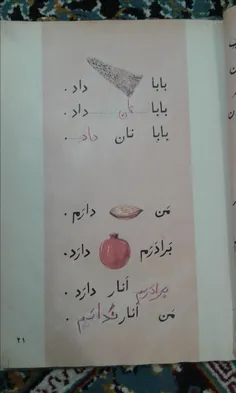 بابا داد.
بابا نان داد.
بابا نان داد.
مَن دارَم.
بَرادَرَم دارَد.
بَرادَرَم اَنار دارَد.
مَن اَنار دارَم.
۲۱